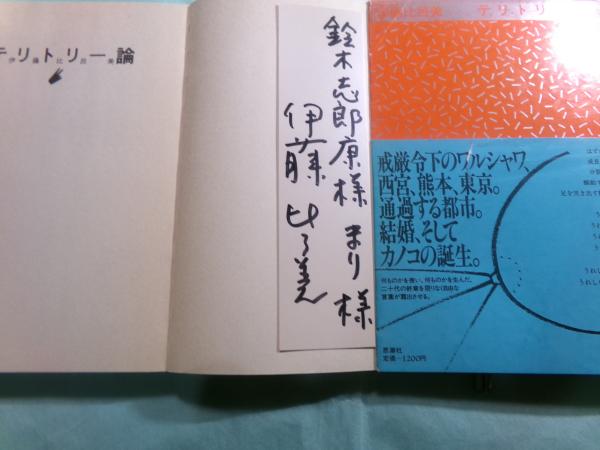 テリトリー論
伊藤比呂美
鈴木志郎康様
まり様
伊藤比呂美
比呂美
テリトリ
戒厳令下のワルシャワ、
西宮、熊本、東京。
通過する都市。
結婚、そして
カノコの誕生。
何ものかを喪い、何ものかを生んだ、
二十代の終章を限りなく自由な
言葉が露出させる。
思潮社
定価―1200円